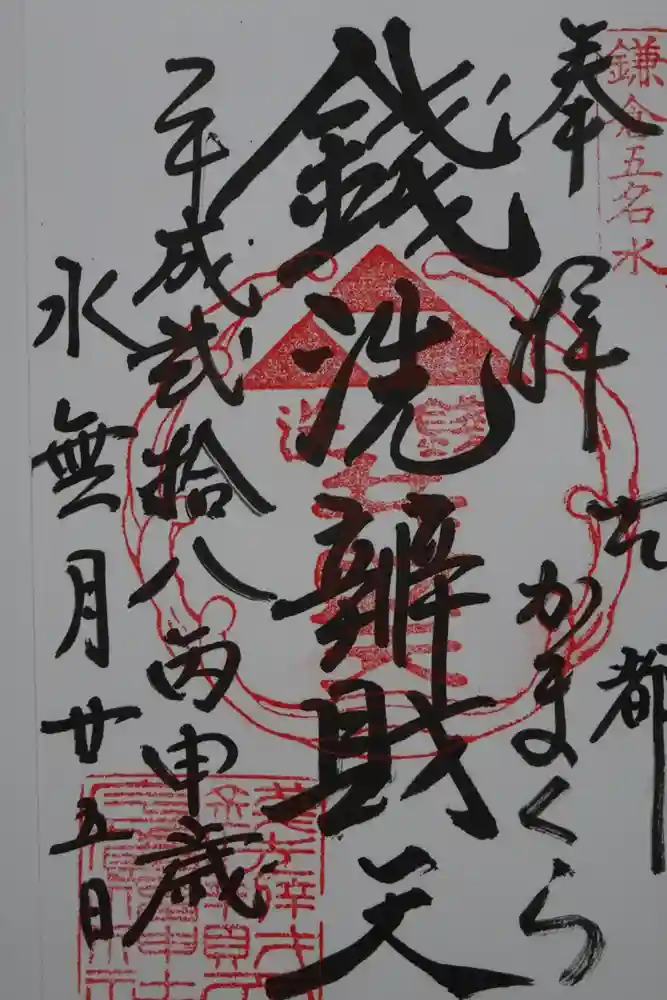 鎌倉五名水
奉拝
古都
かまくら
銭洗辨財天
平成弐拾八丙申歳
水無月廿五日